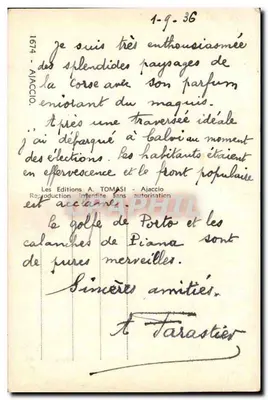 1-9-36
1674 - AJACCIO.
Je suis très enthousiasmée
des splendides paysages de
la Corse avec son parfum
enivrant du maquis.
Après une traversée idéale
j'ai débarqué à Calvi au moment
des élections. les habitants étaient
en effervescence et le front populaire
Les Editions A. TOMASI - Ajaccio
Reproduction interdite sans autorisation
est acclamé.
le golfe de Porto et les
calanches de Piana sont
de pures merveilles.
Sincères amitiés.
A